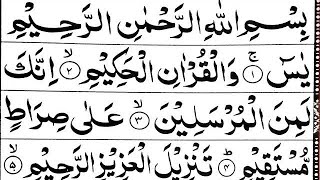 بِسْمِ اللهِ الرَّحْمٰنِ الرَّحِيْمِ
يٰسٓ ۚ ﴿۱﴾ وَالْقُرْاٰنِ الْحَكِيْمِ ۙ ﴿۲﴾ اِنَّكَ
لَمِنَ الْمُرْسَلِيْنَ ۙ ﴿۳﴾ عَلٰى صِرَاطٍ
مُّسْتَقِيْمٍ ؕ ﴿۴﴾ تَنْزِيْلَ الْعَزِيْزِ الرَّحِيْمِ ۙ ﴿۵﴾